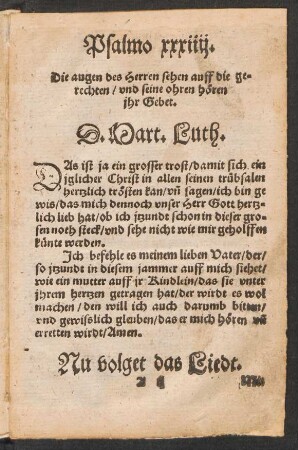 Psalmo xxxiiij.
Die augen des Herren sehen auff die ge-
rechten / vnd seine ohren hören
jhr Gebet.
D. Mart. Luth.
DAs ist ja ein grosser trost / damit sich ein
jglicher Christ in allen seinen trübsalen
hertzlich trösten kan / vñ sagen / ich bin ge
wis / das mich dennoch vnser Herr Gott hertz-
lich lieb hat / ob ich jtzundt schon in dieser gro-
sen noth steck / vnd sehe nicht wie mir geholffen
künte werden.
Ich befehle es meinem lieben Vater / der /
so jtzundt in diesem jammer auff mich siehet /
wie ein mutter auff jr Kindlein / das sie vnter
jhrem hertzen getragen hat / der wirdt es wol
machen / den will ich auch darumb bitten /
vnd gewißlich gleuben / das er mich hören vñ
erretten wirdt / Amen.
Nu volget das Liedt.